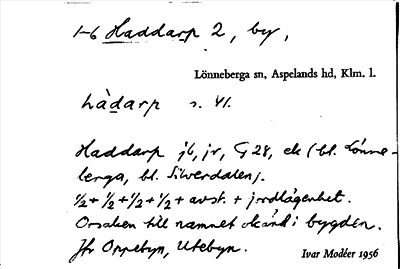 1-6 Haddarp 2, by,
Lönneberga sn, Aspelands hd, Klm. l.
hàdarp s. 41.
Haddarp jb, jr, G 28, ek (bl. Lönne-
berga, bl. Silverdalen).
½ + ½ + ½ + ½ + avst. + jordlägenhet.
Orsaken till namnet okänd i bygden.
Jfr Oppebyn, Utebyn.
Ivar Modéer 1956